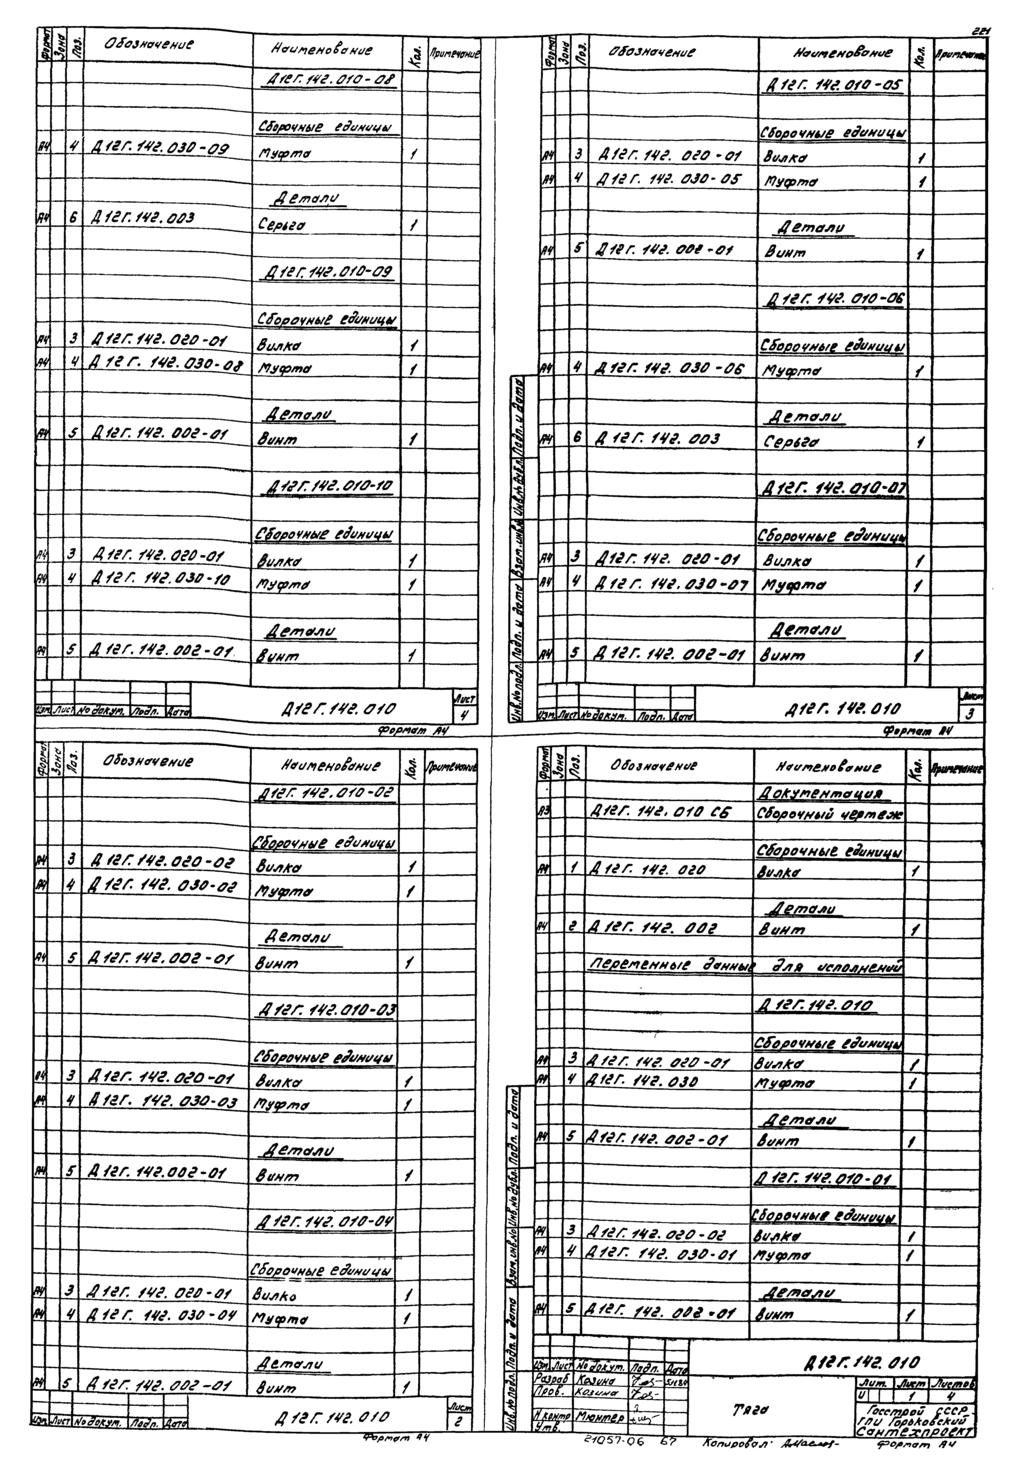 221
Формат Зона Поз. Обозначение Наименование Кол. Примечание
Д12Г.142.010-08
Сборочные единицы
А4 4 Д12Г.142.030-09 Муфта 1
Детали
А4 6 Д12Г.142.003 Серьга 1
Д12Г.142.010-09
Сборочные единицы
А4 3 Д12Г.142.020-01 Вилка 1
А4 4 Д12Г.142.030-08 Муфта 1
Детали
А4 5 Д12Г.142.002-01 Винт 1
Д12Г.142.010-10
Сборочные единицы
А4 3 Д12Г.142.020-01 Вилка 1
А4 4 Д12Г.142.030-10 Муфта 1
Детали
А4 5 Д12Г.142.002-01 Винт 1
Изм. Лист № докум. Подп. Дата Д12Г.142.010 Лист 4
Формат А4
Формат Зона Поз. Обозначение Наименование Кол. Примечание
Д12Г.142.010-05
Сборочные единицы
А4 3 Д12Г.142.020-01 Вилка 1
А4 4 Д12Г.142.030-05 Муфта 1
Детали
А4 5 Д12Г.142.002-01 Винт 1
Д12Г.142.010-06
Сборочные единицы
А4 4 Д12Г.142.030-06 Муфта 1
Детали
А4 6 Д12Г.142.003 Серьга 1
Д12Г.142.010-07
Сборочные единицы
А4 3 Д12Г.142.020-01 Вилка 1
А4 4 Д12Г.142.030-07 Муфта 1
Детали
А4 5 Д12Г.142.002-01 Винт 1
Инв.№ подл. Подп. и дата Взам.инв.№ Инв.№ дубл. Подп. и дата
Изм. Лист № докум. Подп. Дата Д12Г.142.010 Лист 3
Формат А4
Формат Зона Поз. Обозначение Наименование Кол. Примечание
Д12Г.142.010-02
Сборочные единицы
А4 3 Д12Г.142.020-02 Вилка 1
А4 4 Д12Г.142.030-02 Муфта 1
Детали
А4 5 Д12Г.142.002-01 Винт 1
Д12Г.142.010-03
Сборочные единицы
А4 3 Д12Г.142.020-01 Вилка 1
А4 4 Д12Г.142.030-03 Муфта 1
Детали
А4 5 Д12Г.142.002-01 Винт 1
Д12Г.142.010-04
Сборочные единицы
А4 3 Д12Г.142.020-01 Вилка 1
А4 4 Д12Г.142.030-04 Муфта 1
Детали
А4 5 Д12Г.142.002-01 Винт 1
Изм. Лист № докум. Подп. Дата Д12Г.142.010 Лист 2
Формат А4
Формат Зона Поз. Обозначение Наименование Кол. Примечание
Документация
А3 Д12Г.142.010 СБ Сборочный чертеж
Сборочные единицы
А4 1 Д12Г.142.020 Вилка 1
Детали
А4 2 Д12Г.142.002 Винт 1
Переменные данные для исполнений
Д12Г.142.010
Сборочные единицы
А4 3 Д12Г.142.020-01 Вилка 1
А4 4 Д12Г.142.030 Муфта 1
Детали
А4 5 Д12Г.142.002-01 Винт 1
Д12Г.142.010-01
Сборочные единицы
А4 3 Д12Г.142.020-02 Вилка 1
А4 4 Д12Г.142.030-01 Муфта 1
Детали
А4 5 Д12Г.142.002-01 Винт 1
Инв.№ подл. Подп. и дата Взам.инв.№ Инв.№ дубл. Подп. и дата
Изм. Лист № докум. Подп. Дата Д12Г.142.010
Разраб. Козина
Пров. Козина
Н.контр Мюнтер
Утв.
Тяга
Лит. Лист Листов
И 1 4
Госстрой СССР
ГПИ Горьковский
Сантехпроект
21057-06 67 Копировал: Формат А4